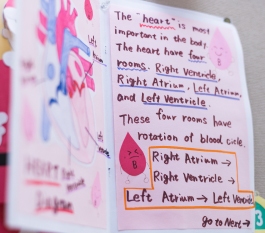 Left
The "heart" is most
important in the body.
The heart have four
rooms. Right Ventricle,
Right Atrium, Left Atrium,
and Left Ventricle.
These four rooms have
rotation of blood cicle.
Right Atrium →
Right Ventricle →
Left Atrium → Left Ventricle
go to Next →